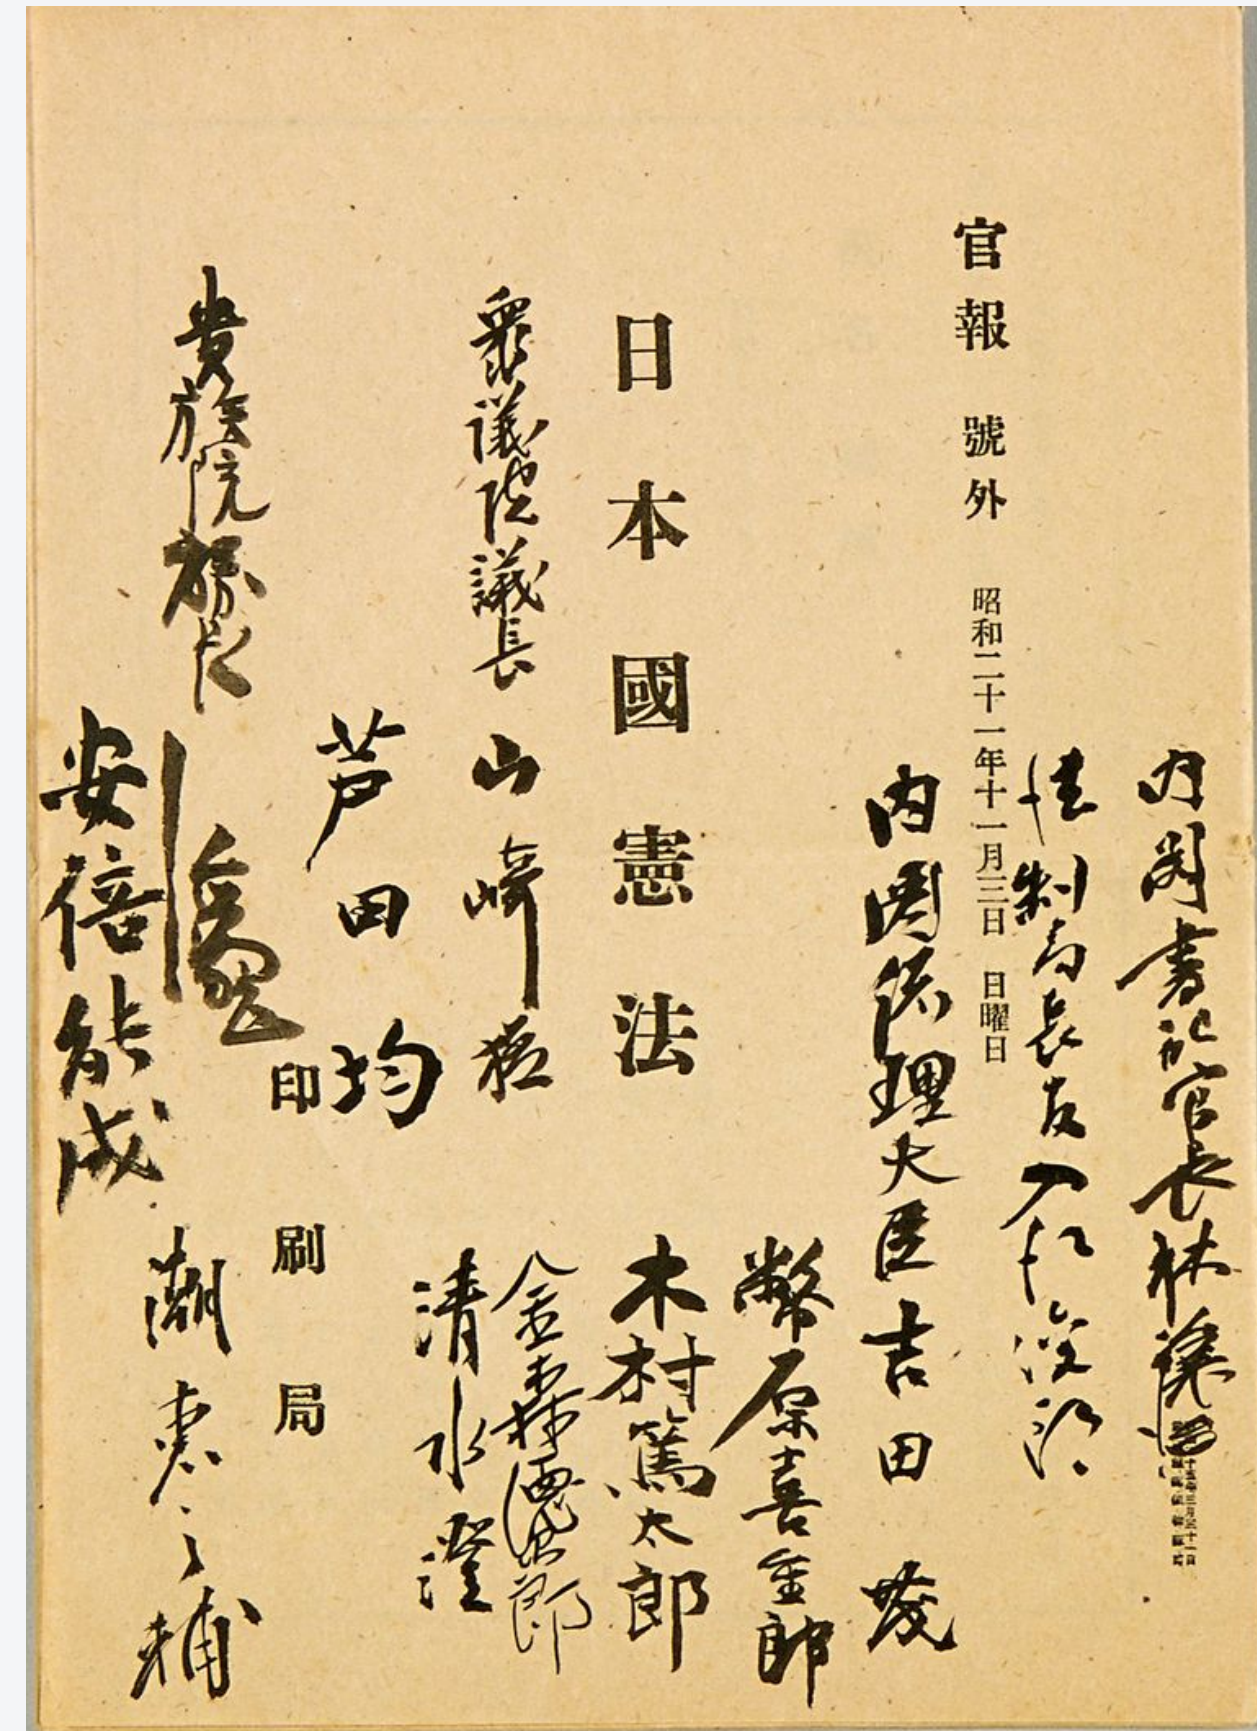 内閣書記官長林譲治
法制局長官入江俊郎
官報 號外 昭和二十一年十一月三日 日曜日
内閣総理大臣吉田茂
幣原喜重郎
日本國憲法
木村篤太郎
金森德次郎
衆議院議長 山崎猛
清水澄
芦田均
印刷局
貴族院議長
潮恵之輔
安倍能成